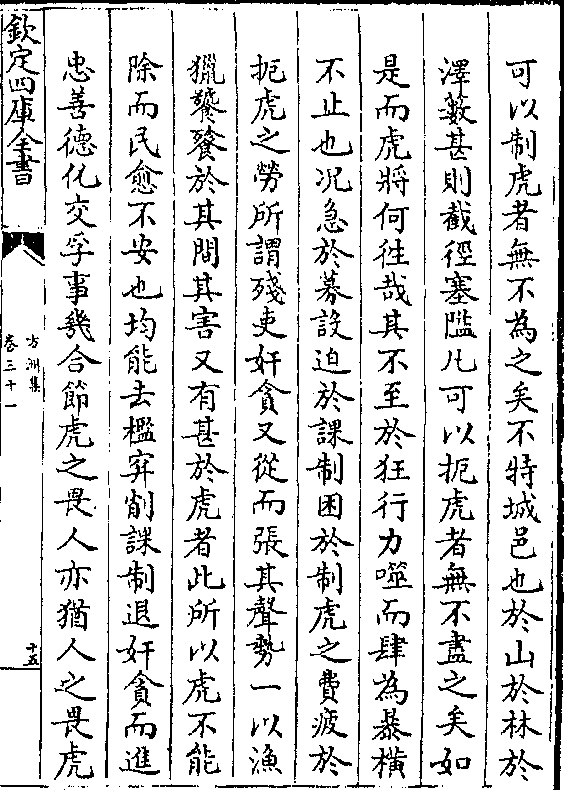 可以制虎者無不為之矣不特城邑也於山於林於
澤藪甚則截徑塞隘凡可以扼虎者無不盡之矣如
是而虎將何徃哉其不至於狂行力噬而肆為暴橫
不止也况急於募設迫於課制困於制虎之費疲於
扼虎之勞所謂殘吏奸貪又從而張其聲勢一以漁
獵饕餮於其間其害又有甚於虎者此所以虎不能
除而民愈不安也均能去檻穽削課制退奸貪而進
忠善德化交孚事幾合節虎之畏人亦猶人之畏虎
欽定四庫全書
方洲集
卷三十一
十五